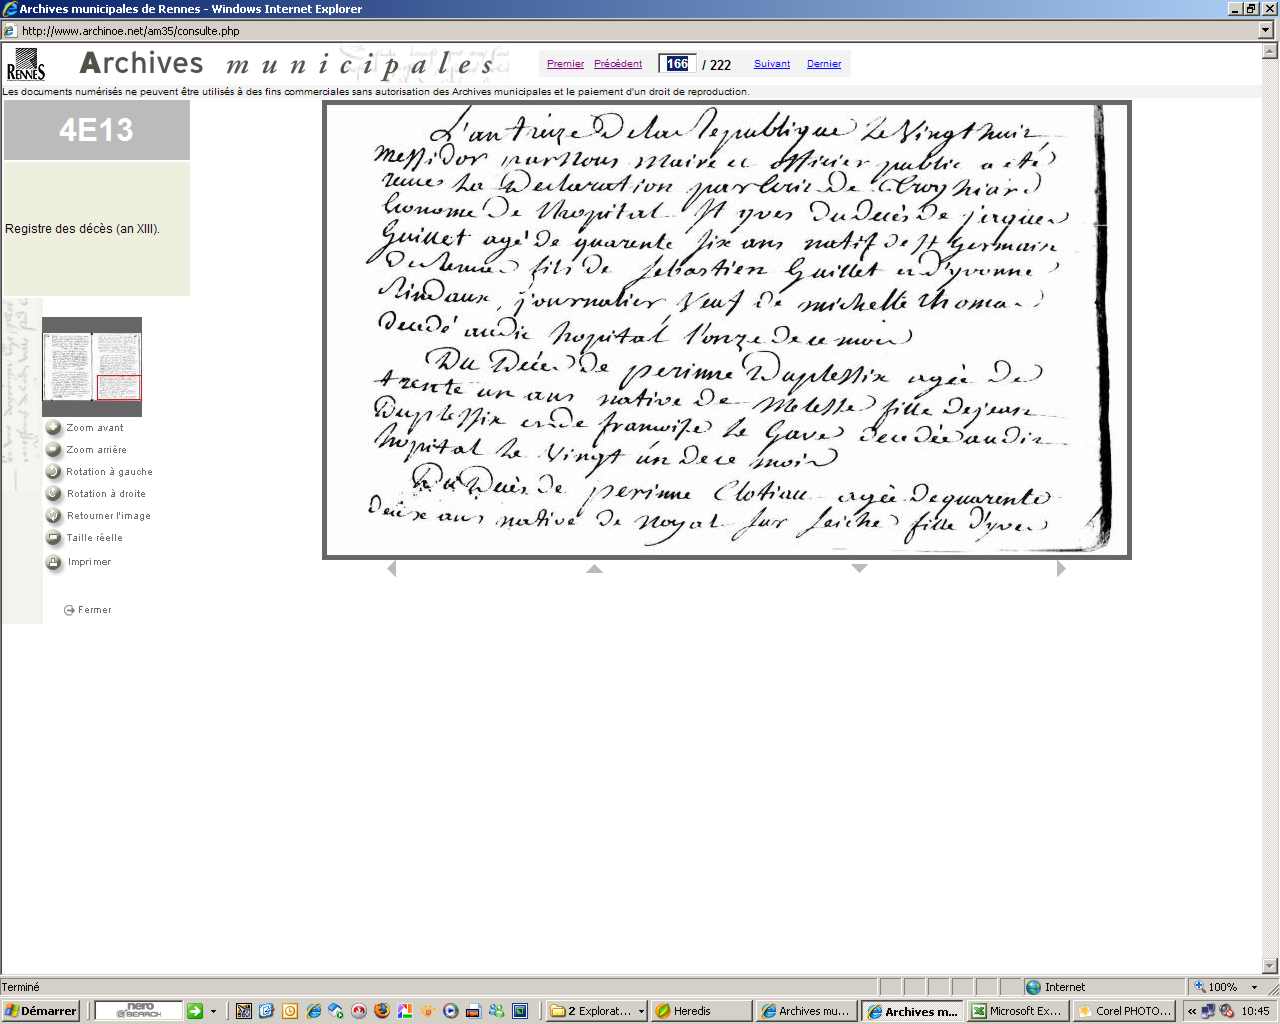 Archives municipales de Rennes - Windows Internet Explorer
http://www.archinoe.net/am35/consulte.php
RENNES
Archives municipales
Premier Précédent 166 / 222 Suivant Dernier
Les documents numérisés ne peuvent être utilisés à des fins commerciales sans autorisation des Archives municipales et le paiement d'un droit de reproduction.
4E13
Registre des décès (an XIII).
Zoom avant
Zoom arrière
Rotation à gauche
Rotation à droite
Retourner l'image
Taille réelle
Imprimer
Fermer
L'an treize De la Republique Le Vingt huit
messidor par Nous maire et officier public a eté
La Declaration par De
Econome De L'hopital St yves du decès de jacques
Guillet agé de quarente six ans natif de St Germain
fils de Sebastien Guillet et d'yvonne
journalier Veuf de michelle thomas
decedé audit hopital l'onze de ce mois
Du Décès De perinne Duplessix agée De
trente un ans native De Melesse fille de jean
Duplessix et de francoise Le Gave decedée audit
hopital Le Vingt un de ce mois
Du Decès De perinne Clotiau agée De quarente
deux ans native de noyal sur seiche fille d'yves
Terminé
Internet
100%
Démarrer
nero
SEARCH
2 Explorat...
Heredis
Archives mu...
Archives m...
Microsoft Ex...
Corel PHOTO...
10:45